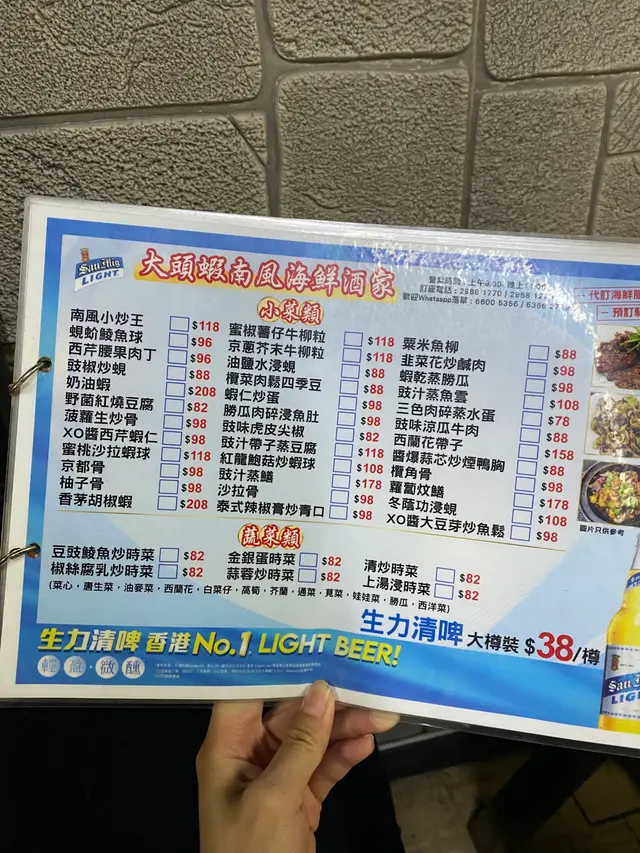 San Mig
LIGHT
大頭蝦南風海鮮酒家
代訂海鮮
預訂
小菜類
南風小炒王 $118
蜆蚧鯪魚球 $96
西芹腰果肉丁 $96
豉椒炒蜆 $88
奶油蝦 $208
野菌紅燒豆腐 $82
菠蘿生炒骨 $98
XO醬西芹蝦仁 $98
蜜桃沙拉蝦球 $118
京都骨 $98
柚子骨 $98
香茅胡椒蝦 $208
蜜椒薯仔牛柳粒 $118
京蔥芥末牛柳粒 $118
油鹽水浸蜆 $88
欖菜肉鬆四季豆 $88
蝦仁炒蛋 $98
勝瓜肉碎浸魚肚 $98
豉味虎皮尖椒 $82
豉汁帶子蒸豆腐 $118
紅龍鮑菇炒蝦球 $108
豉汁蒸鱔 $178
沙拉骨 $98
泰式辣椒膏炒青口 $98
粟米魚柳 $88
韭菜花炒鹹肉 $98
蝦乾蒸勝瓜 $98
豉汁蒸魚雲 $108
三色肉碎蒸水蛋 $78
豉味涼瓜牛肉 $88
西蘭花帶子 $158
醬爆蒜芯炒煙鴨胸 $88
欖角骨 $98
蘿蔔炆鱔 $178
冬蔭功浸蜆 $108
XO醬大豆芽炒魚鬆 $98
圖片只供參考
蔬菜類
豆豉鯪魚炒時菜 $82
椒絲腐乳炒時菜 $82
金銀蛋時菜 $82
蒜蓉炒時菜 $82
清炒時菜 $82
上湯浸時菜 $82
(菜心，唐生菜，油麥菜，西蘭花，白菜仔，萵筍，芥蘭，通菜，莧菜，娃娃菜，勝瓜，西洋菜)
生力清啤 大樽裝 $38/樽
生力清啤 香港No.1 LIGHT BEER!
輕盈·微醺
San Mig
LIGHT